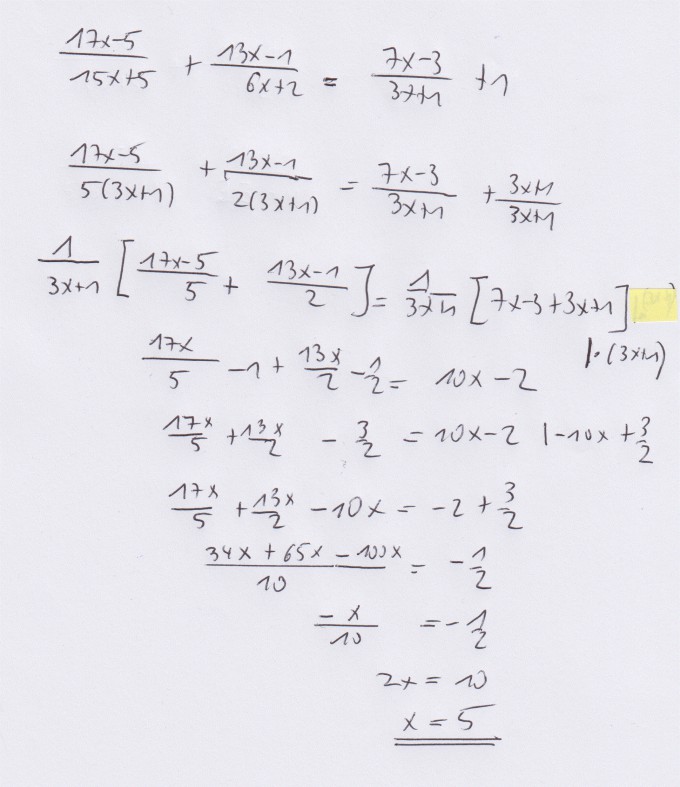 (17x-5)/(15x+5) + (13x-1)/(6x+2) = (7x-3)/(3x+1) +1
(17x-5)/(5(3x+1)) + (13x-1)/(2(3x+1)) = (7x-3)/(3x+1) + (3x+1)/(3x+1)
1/(3x+1) [(17x-5)/5 + (13x-1)/2] = 1/(3x+1) [7x-3+3x+1]
|· (3x+1)
17x/5 -1 + 13x/2 - 1/2 = 10x-2
17x/5 + 13x/2 - 3/2 = 10x-2 |-10x + 3/2
17x/5 + 13x/2 - 10x = -2 + 3/2
(34x + 65x - 100x)/10 = - 1/2
-x/10 = - 1/2
2x = 10
x = 5